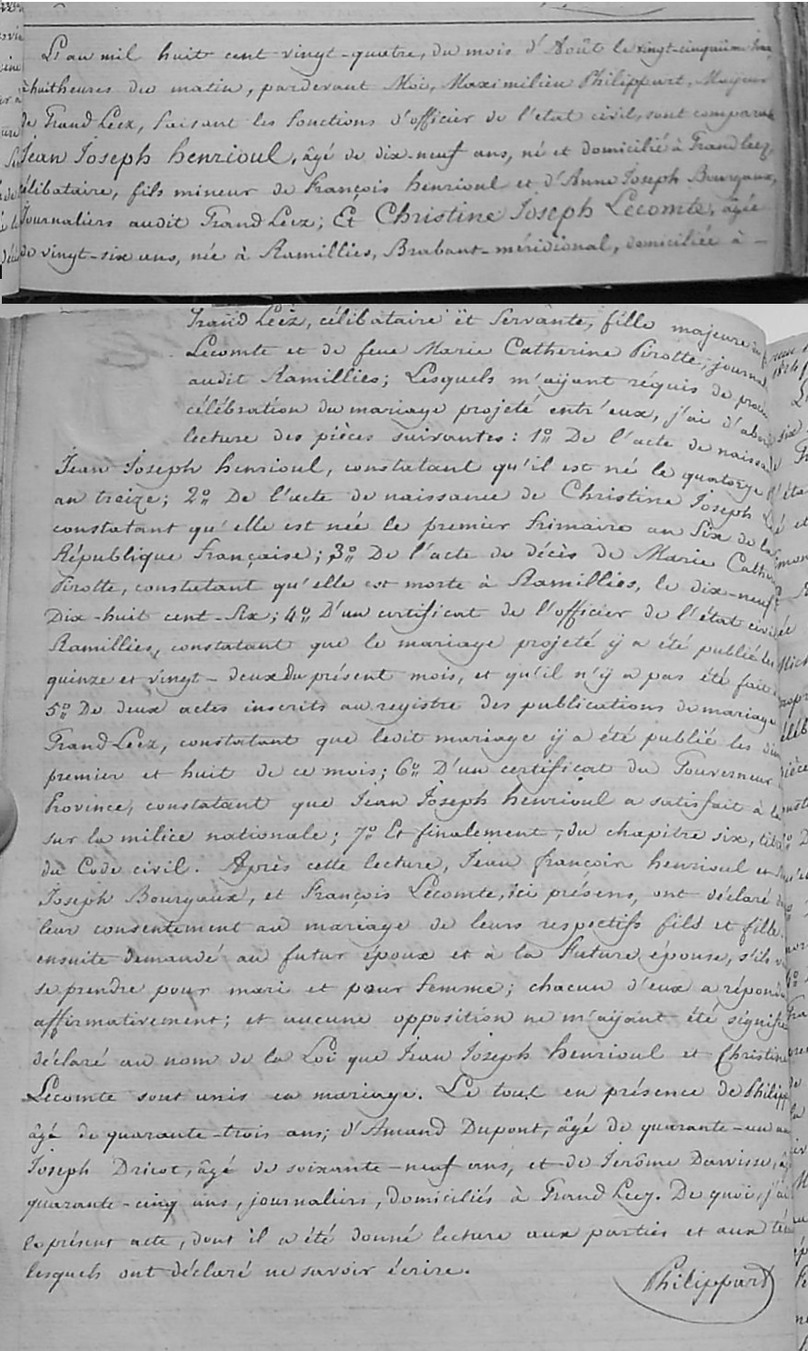 L'an mil huit cent vingt-quatre, du mois d'Août le vingt-cinquième
à huit heures du matin, pardevant Moi, Maximilien Philippart, Mayeur
de Grand Leez, faisant les fonctions d'officier de l'état civil, sont comparus
Jean Joseph henrioul, âgé de dix-neuf ans, né et domicilié à Grand Leez,
célibataire, fils mineur de François henrioul et d'Anne Joseph Bourgaux,
Journaliers audit Grand Leez; Et Christine Joseph Lecomte, âgée
de vingt-six ans, née à Ramillies, Brabant-méridional, domiciliée à –
Grand Leez, célibataire et Servante, fille majeure
Lecomte et de feue Marie Catherine Pirotte, journal
audit Ramillies; Lesquels m'aÿant réquis de
célébration du mariage projeté entr'eux, j'ai d'ab
lecture des pièces suivantes: 1º De l'acte de naissa
Jean Joseph henrioul, constatant qu'il est né le quatorze
an treize; 2º De l'acte de naissance de Christine Joseph
constatant qu'elle est née le premier frimaire an Six de la
République française; 3º De l'acte de décès de Marie Cath
Pirotte, constatant qu'elle est morte à Ramillies, le dix-neuf
Dix-huit cent-Six; 4º D'un certificat de l'officier de l'état civil
Ramillies, constatant que le mariage projeté ÿ a été publié les
quinze et vingt-deux du présent mois, et qu'il n'ÿ a pas été fait
5º De deux actes inscrits au registre des publications de mariage
Grand-Leez, constatant que ledit mariage ÿ a été publié les
premier et huit de ce mois; 6º D'un certificat du Gouverneur
Province, constatant que Jean Joseph henrioul a satisfait à
sur la milice nationale; 7º Et finalement, du chapitre six, titre
du Code civil. Après cette lecture, Jean françois henrioul et
Joseph Bourgaux, et François Lecomte, ici présens, ont déclaré
leur consentement au mariage de leurs respectifs fils et fille.
ensuite demandé au futur époux et à la future épouse, s'ils
se prendre pour mari et pour femme; chacun d'eux a répondu
affirmativement; et aucune opposition ne m'aÿant été signifi
déclaré au nom de la Loi que Jean Joseph henrioul et Christine
Lecomte sont unis en mariage. Le tout en présence de Philipp
âgé de quarante-trois ans; d'Amand Dupont, âgé de quarante-un
Joseph Dricot, âgé de soixante-neuf ans, et de Jérôme Dawisse,
quarante-cinq ans, journaliers, domiciliés à Grand Leez. De quoi, j'ai
le présent acte, dont il a été donné lecture aux parties et aux
lesquels ont déclaré ne savoir écrire.
Philippart